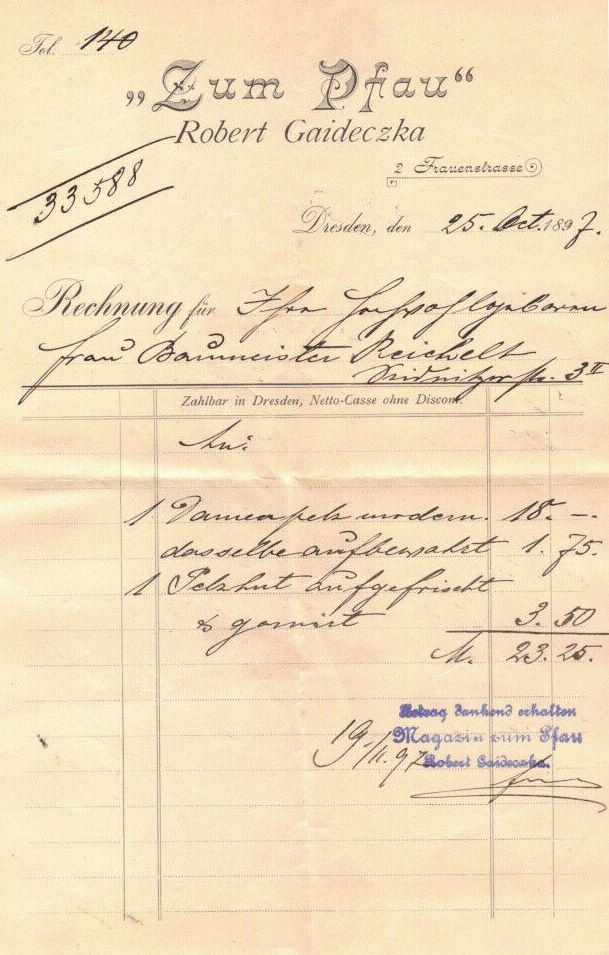 Fol. 140
„Zum Pfau“
Robert Gaideczka
33588
2 Frauenstrasse
Dresden, den 25. Oct. 1897.
Rechnung für Ihre Hochwohlgeboren
Frau Baumeister Reichelt
3 II
Zahlbar in Dresden, Netto-Casse ohne Discont.
An:
1 Damenpelz modern. 18. –.
dasselbe aufbewahrt 1. 75.
1 Pelzhut aufgefrischt
& garnirt 3. 50
M. 23. 25.
Betrag dankend erhalten
Magazin zum Pfau
19/11. 97 Robert Gaideczka.